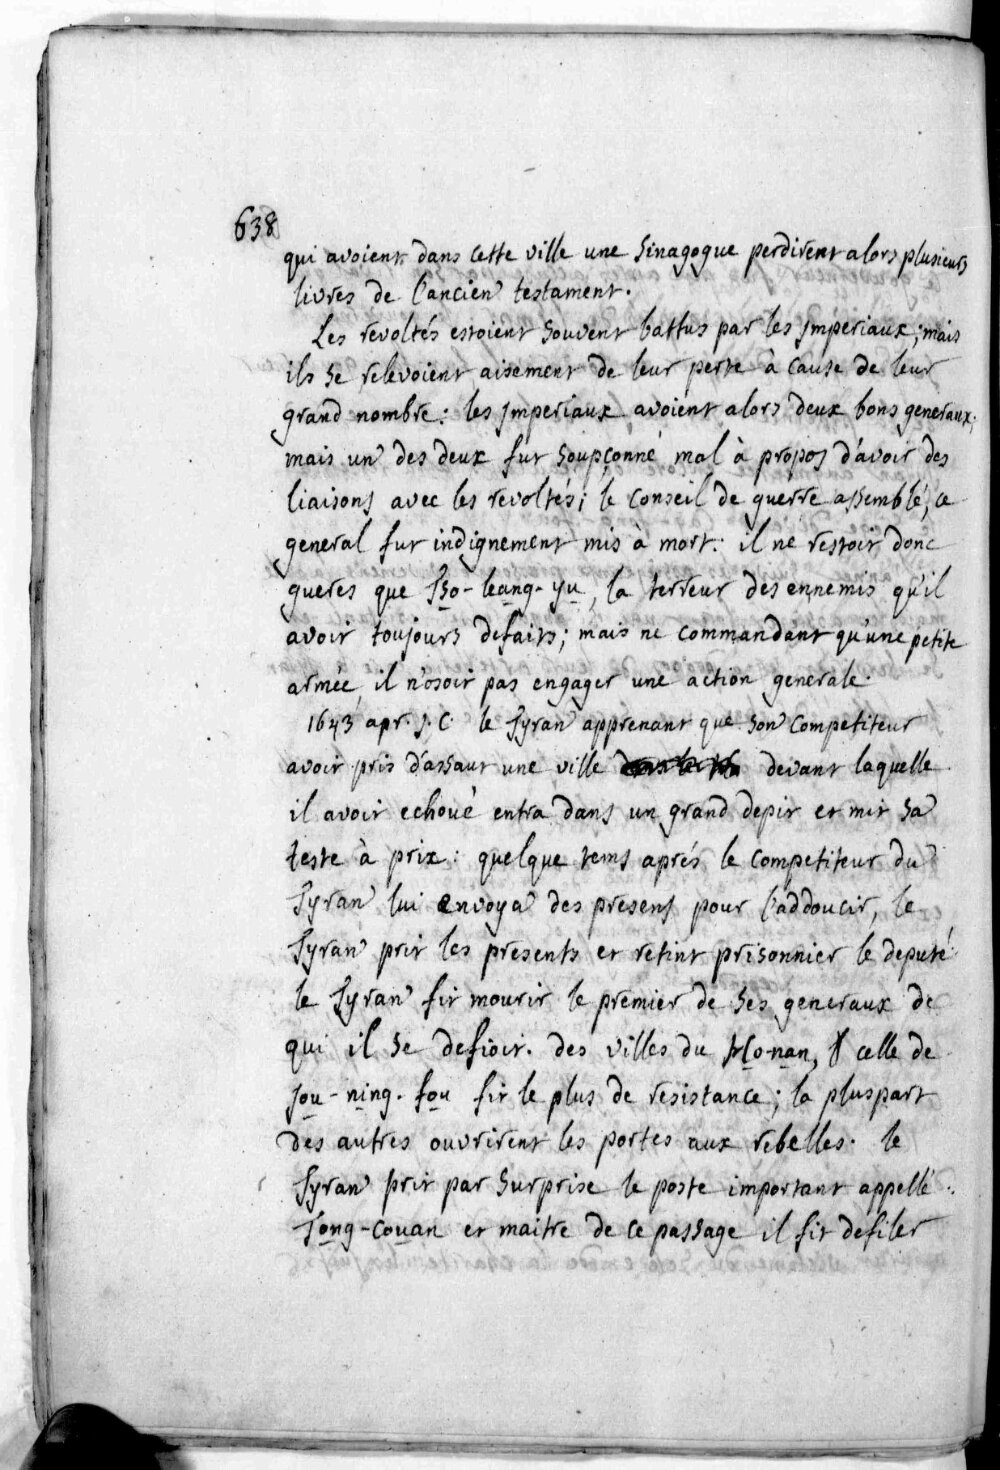 638
qui avoient dans cette ville une Sinagogue perdirent alors plusieurs
livres de l'ancien testament.
Les revoltés estoient souvent battus par les jmperiaux; mais
ils se relevoient aisement de leur perte à cause de leur
grand nombre: les jmperiaux avoient alors deux bons generaux;
mais un des deux fut soupçonné mal à propos d'avoir des
liaisons avec les revoltés; le conseil de guerre assemblé, ce
general fut indignement mis à mort: il ne restoit donc
gueres que Tso-leang-yu, la terreur des ennemis qu'il
avoit toujours defaits; mais ne commandant qu'une petite
armée, il n'osoit pas engager une action generale.
1643 apr. J. C. le Tyran apprenant que son competiteur
avoit pris d'assaut une ville devant laquelle
il avoit echoué entra dans un grand depit et mit sa
teste à prix: quelque tems aprés le competiteur du
Tyran lui envoya des presens pour l'addoucir, le
Tyran prit les presents et retint prisonnier le deputé
le Tyran fit mourir le premier de ses generaux de
qui il se defioit. des villes du Ho-nan, celle de
jou-ning-fou fit le plus de resistance; la pluspart
des autres ouvrirent les portes aux rebelles. le
Tyran prit par surprise le poste important appellé
Tong-couan et maitre de ce passage il fit defiler